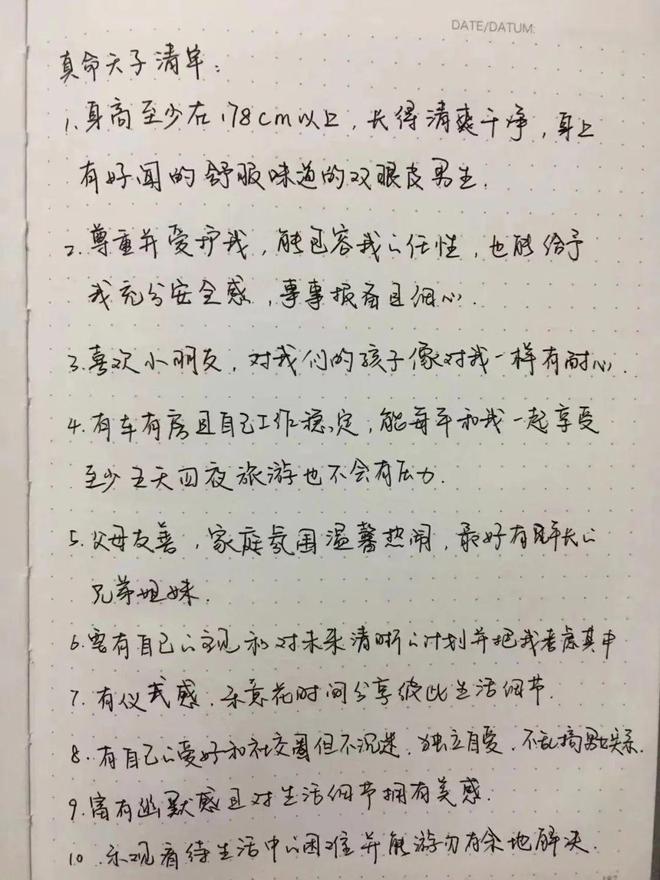 DATE/DATUM:
真命天子清单:
1.身高至少在178cm以上,长得清爽干净,身上
有好闻的舒服味道的双眼皮男生.
2.尊重并爱护我,能包容我的任性,也能给予
我充分安全感,事事报备且细心.
3.喜欢小朋友,对我们的孩子像对我一样有耐心.
4.有车有房且自己工作稳定,能每年和我一起享受
至少五天四夜旅游也不会有压力.
5.父母友善,家庭氛围温馨热闹,最好有年长的
兄弟姐妹.
6.要有自己的主见和对未来清晰的计划并把我考虑其中
7.有仪式感,乐意花时间分享彼此生活细节.
8.有自己的爱好和社交圈但不沉迷.独立自爱.不乱搞男女关系.
9.富有幽默感且对生活细节拥有美感.
10.乐观看待生活中的困难并能游刃有余地解决.